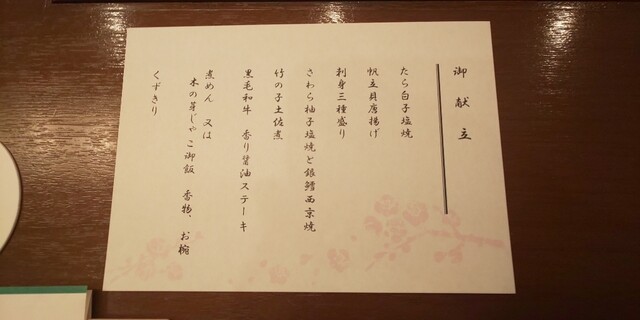 御献立
たら白子塩焼
帆立貝唐揚げ
刺身三種盛り
さわら柚子塩焼と銀鱈西京焼
竹の子土佐煮
黒毛和牛 香り醤油ステーキ
煮めん 又は
木の芽じゃこ御飯 香物、お椀
くずきり